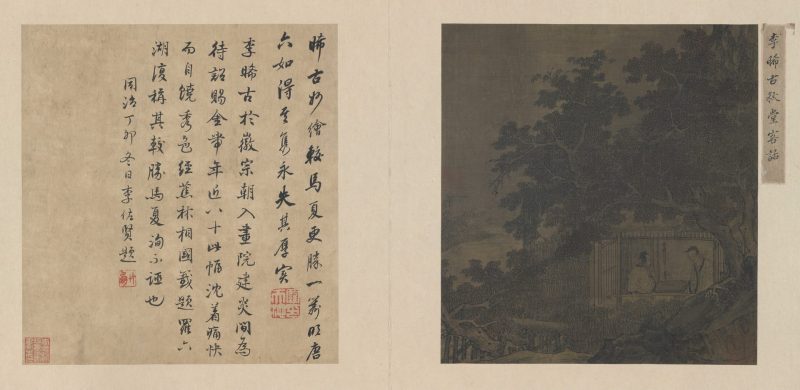 李晞古秋堂客話
晞古妙繪較馬夏更勝一籌明唐
六如得其雋永失其厚實
李晞古於徽宗朝入畫院建炎間為
待詔賜金帶年近八十此幅沈着痛快
而自饒秀色經蕉林相國載題羅六
湖濱稱其較勝馬夏洵不誣也
同治丁卯冬日李佐賢題